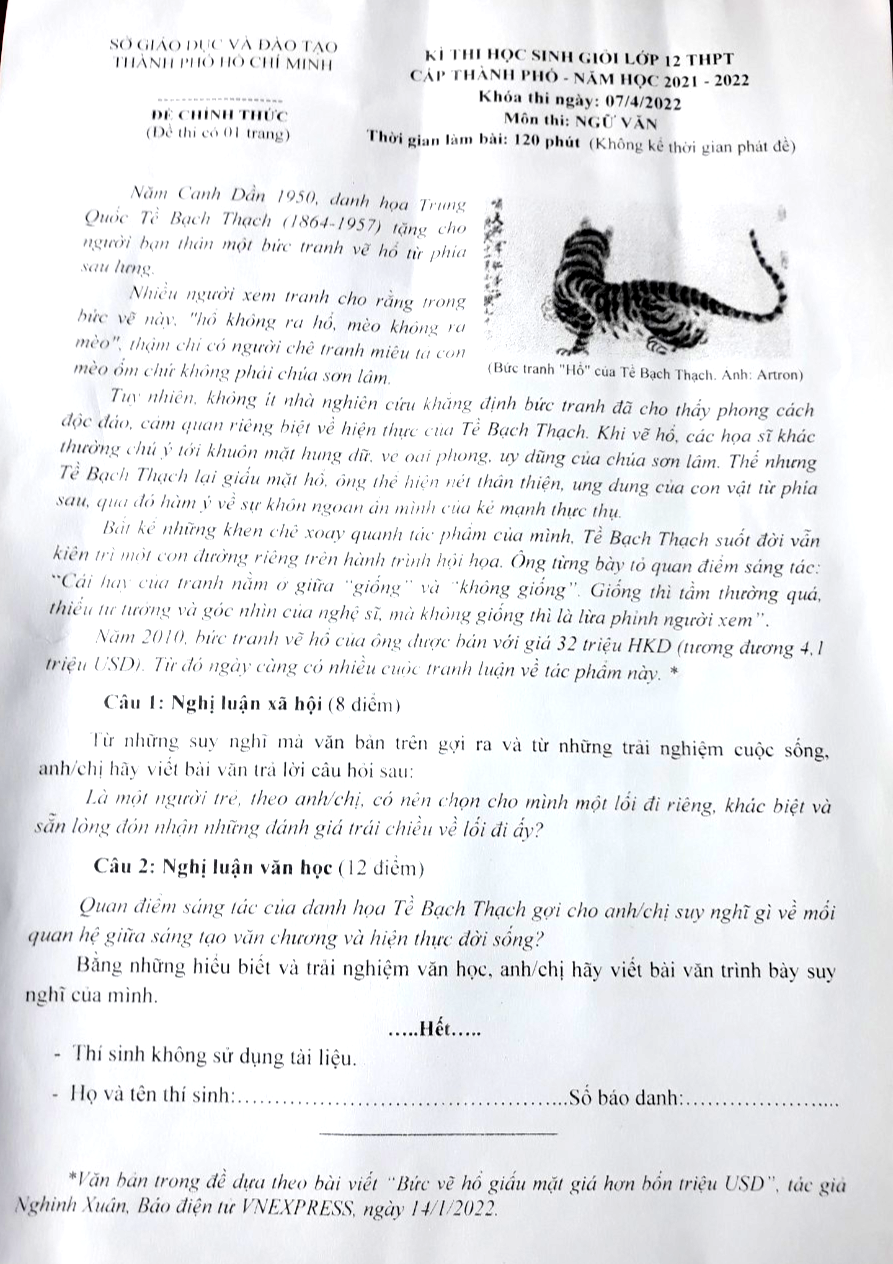 SỞ GIÁO DỤC VÀ ĐÀO TẠO
THÀNH PHỐ HỒ CHÍ MINH
ĐỀ CHÍNH THỨC
(Đề thi có 01 trang)
KÌ THI HỌC SINH GIỎI LỚP 12 THPT
CẤP THÀNH PHỐ - NĂM HỌC 2021 - 2022
Khóa thi ngày: 07/4/2022
Môn thi: NGỮ VĂN
Thời gian làm bài: 120 phút (Không kể thời gian phát đề)
Năm Canh Dần 1950, danh họa Trung
Quốc Tề Bạch Thạch (1864-1957) tặng cho
người bạn thân một bức tranh vẽ hổ từ phía
sau lưng.
Nhiều người xem tranh cho rằng trong
bức vẽ này, "hổ không ra hổ, mèo không ra
mèo", thậm chí có người chê tranh miêu tả con
mèo ốm chứ không phải chúa sơn lâm.
(Bức tranh "Hổ" của Tề Bạch Thạch. Ảnh: Artron)
Tuy nhiên, không ít nhà nghiên cứu khẳng định bức tranh đã cho thấy phong cách
độc đáo, cảm quan riêng biệt về hiện thực của Tề Bạch Thạch. Khi vẽ hổ, các họa sĩ khác
thường chú ý tới khuôn mặt hung dữ, vẻ oai phong, uy dũng của chúa sơn lâm. Thế nhưng
Tề Bạch Thạch lại giấu mặt hổ, ông thể hiện nét thân thiện, ung dung của con vật từ phía
sau, qua đó hàm ý về sự khôn ngoan ẩn mình của kẻ mạnh thực thụ.
Bất kể những khen chê xoay quanh tác phẩm của mình, Tề Bạch Thạch suốt đời vẫn
kiên trì một con đường riêng trên hành trình hội họa. Ông từng bày tỏ quan điểm sáng tác:
"Cái hay của tranh nằm ở giữa "giống" và "không giống". Giống thì tầm thường quá,
thiếu tư tưởng và góc nhìn của nghệ sĩ, mà không giống thì là lừa phỉnh người xem".
Năm 2010, bức tranh vẽ hổ của ông được bán với giá 32 triệu HKD (tương đương 4,1
triệu USD). Từ đó ngày càng có nhiều cuộc tranh luận về tác phẩm này. *
Câu 1: Nghị luận xã hội (8 điểm)
Từ những suy nghĩ mà văn bản trên gợi ra và từ những trải nghiệm cuộc sống,
anh/chị hãy viết bài văn trả lời câu hỏi sau:
Là một người trẻ, theo anh/chị, có nên chọn cho mình một lối đi riêng, khác biệt và
sẵn lòng đón nhận những đánh giá trái chiều về lối đi ấy?
Câu 2: Nghị luận văn học (12 điểm)
Quan điểm sáng tác của danh họa Tề Bạch Thạch gợi cho anh/chị suy nghĩ gì về mối
quan hệ giữa sáng tạo văn chương và hiện thực đời sống?
Bằng những hiểu biết và trải nghiệm văn học, anh/chị hãy viết bài văn trình bày suy
nghĩ của mình.
.....Hết.....
- Thí sinh không sử dụng tài liệu.
- Họ và tên thí sinh:..........................................Số báo danh:.....................
*Văn bản trong đề dựa theo bài viết "Bức vẽ hổ giấu mặt giá hơn bốn triệu USD", tác giả
Nghinh Xuân, Báo điện tử VNEXPRESS, ngày 14/1/2022.